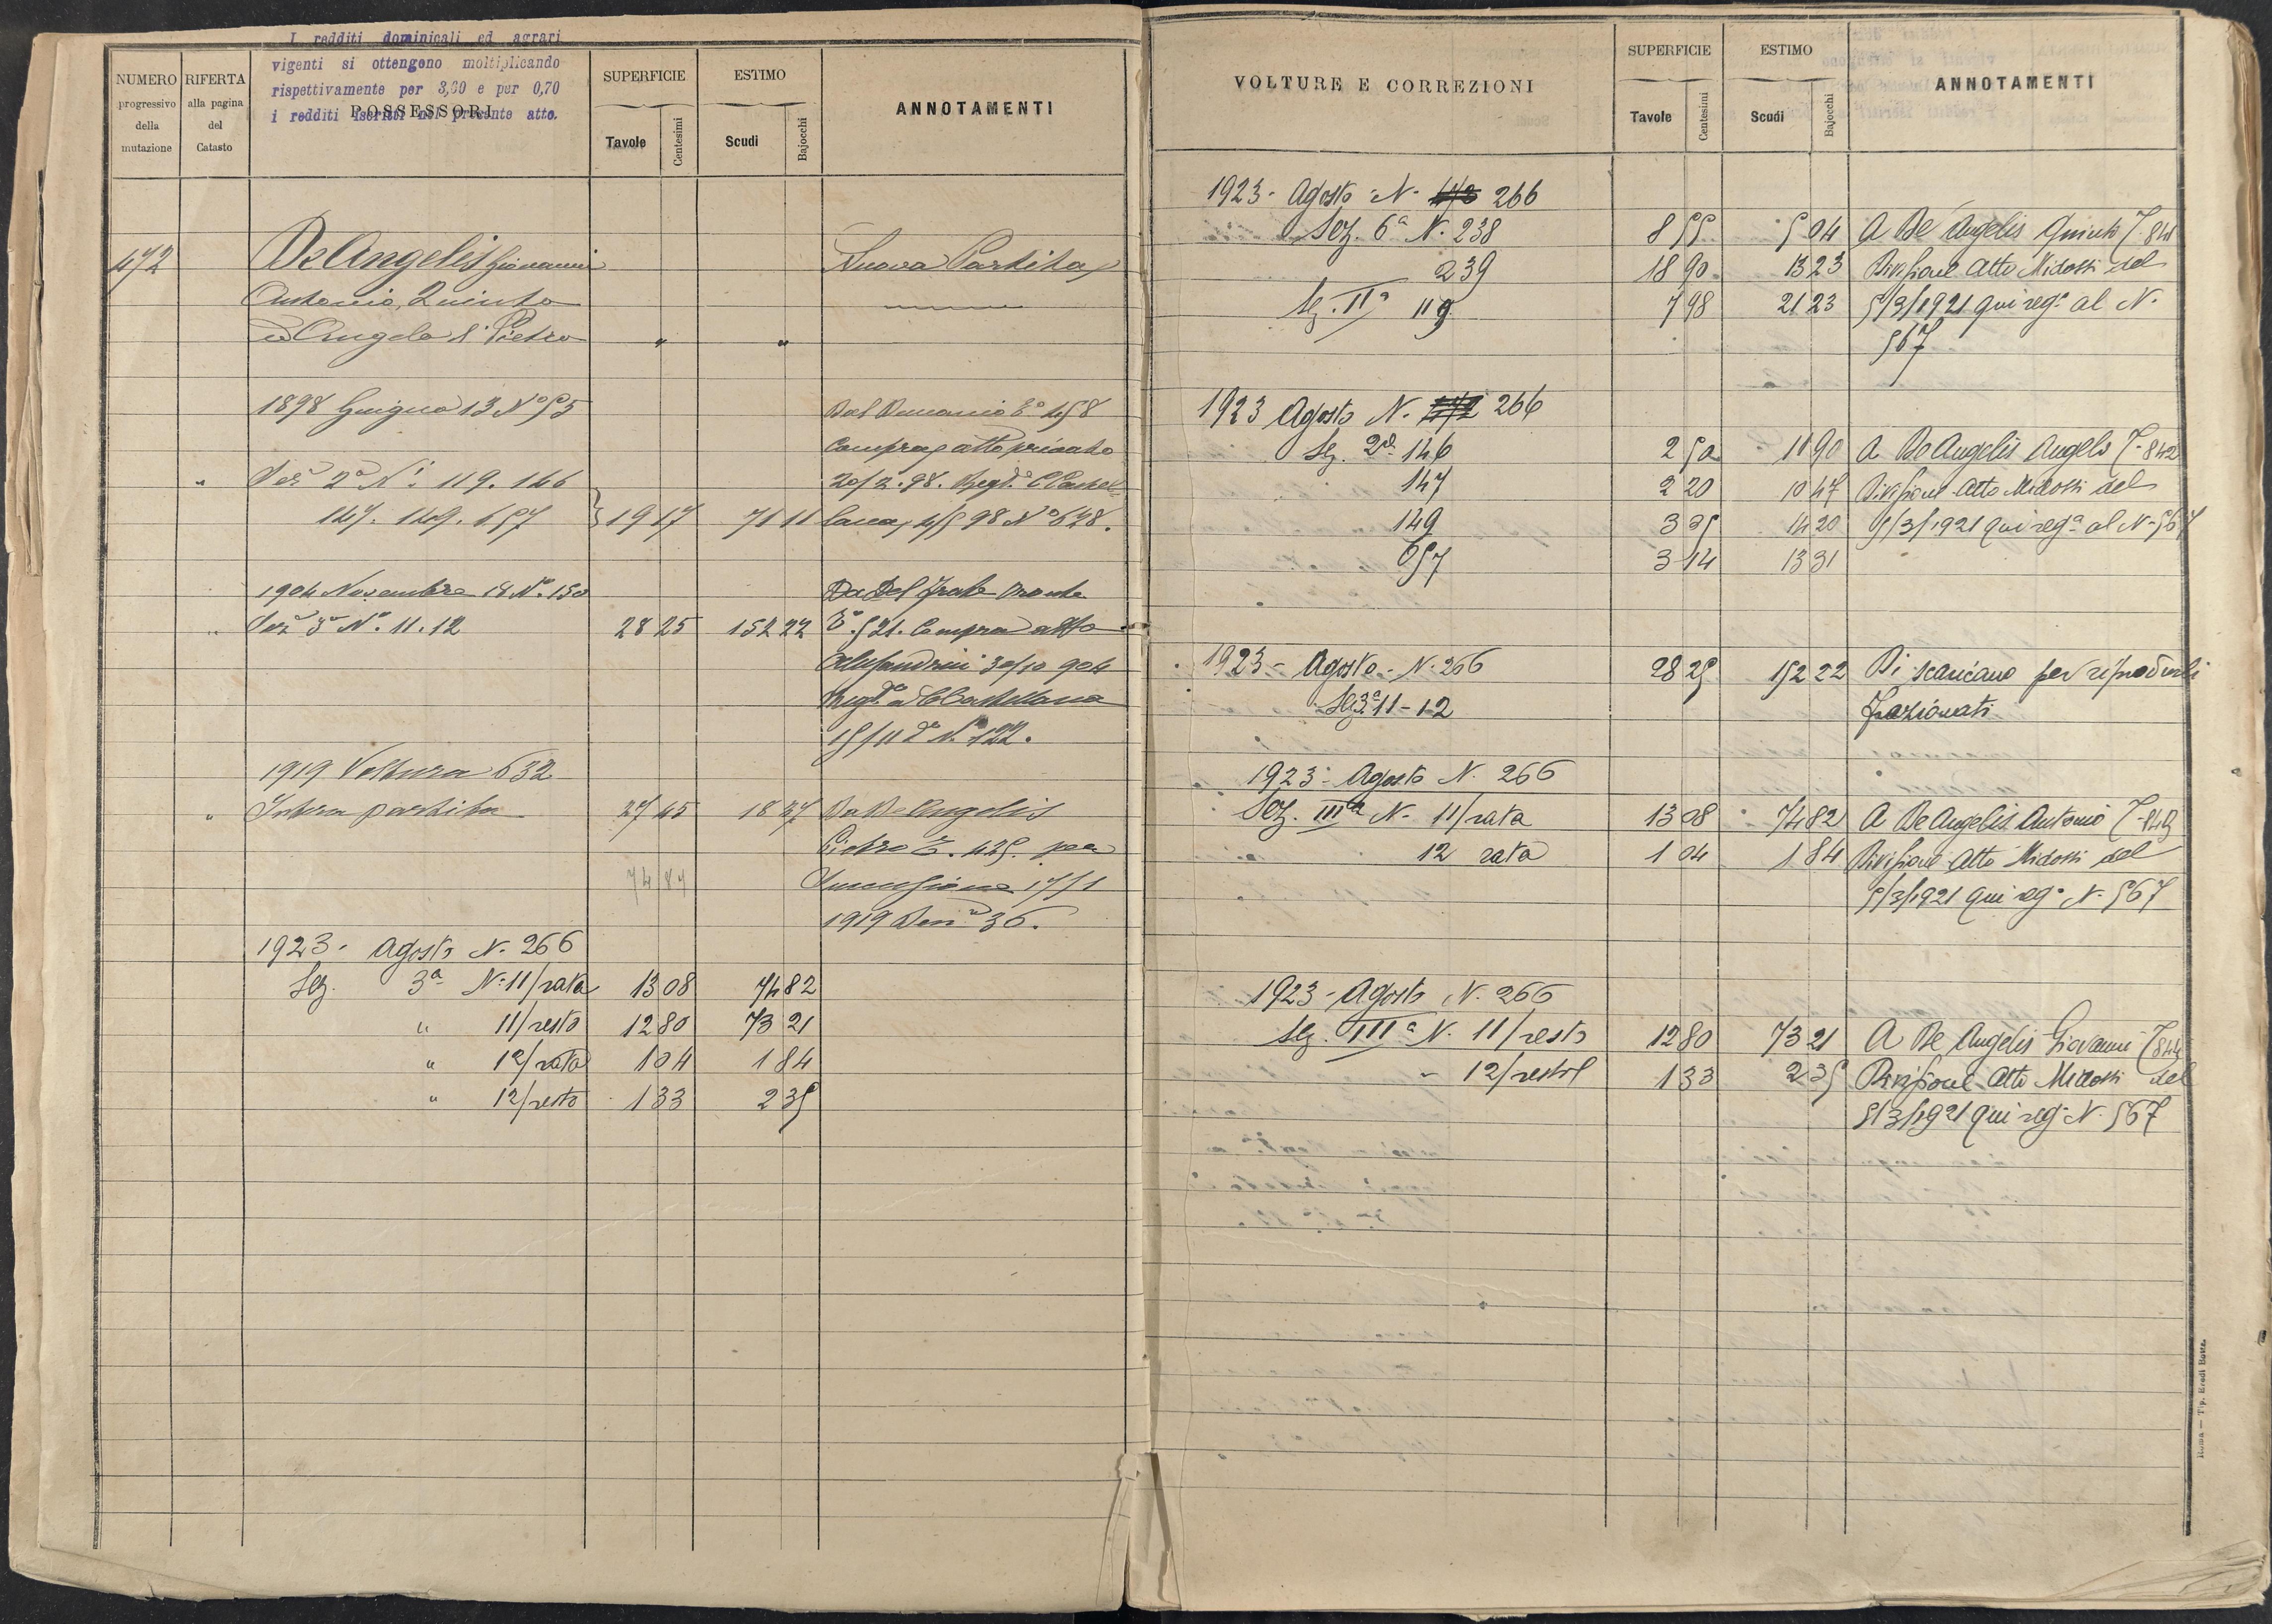 I redditi dominicali ed agrari
vigenti si ottengono moltiplicando
rispettivamente per 3,60 e per 0,70
i redditi iscritti nel presente atto.
NUMERO progressivo della mutazione
RIFERTA alla pagina del Catasto
POSSESSORI
SUPERFICIE Tavole Centesimi
ESTIMO Scudi Bajocchi
ANNOTAMENTI
472 De Angelis Giovanni Nuova Partita
Antonio, Quinto
ed Angelo di Pietro " "
1898 Giugno 13 N° 55 Dal Demanio T° 458
Compra, atto privato
" Sez 2a Ni 119. 146 20/2.98. Regto C Castel-
147. 149. 657 } 19 17 71 11 lana, 4/5 98 N° 628.
1904 Novembre 18 N° 150 Da Del Frate Oronte
" Sez 3a N° 11. 12 28 25 152 22 T° 521. Compra atto
Alessandrini 30/10 904
Regto a C Castellana
15/11 do N° 422.
1919 Voltura 632
" Intera partita 27 45 18 27 Da De Angelis
Pietro T. 425. per
74 87 Successione 17/1
1919 Den° 36.
1923 - Agosto N. 266
Sez. 3a N. 11/rata 13 08 74 82
" 11/resto 12 80 73 21
" 12/rata 1 04 1 84
" 12/resto 1 33 2 35
VOLTURE E CORREZIONI
SUPERFICIE Tavole Centesimi
ESTIMO Scudi Bajocchi
ANNOTAMENTI
1923 - Agosto - N. 266
Sez. 6a N. 238 8 55 5 04 A De Angelis Quinto T. 841
239 18 90 13 23 Divisione Atto Midossi del
Sez. IIa 119 7 98 21 23 5/3/1921 qui rega al N.
567
1923 Agosto N. 266
Sez. 2a 146 2 50 11 90 A De Angelis Angelo T. 842
147 2 20 10 47 Divisione Atto Midossi del
149 3 35 14 20 5/3/1921 qui rega al N. 567
657 3 14 13 31
1923 - Agosto - N. 266 28 25 152 22 Si scaricano per riprodurli
Sez 3a 11-12 frazionati
1923 - Agosto N. 266
Sez. IIIa N. 11/rata 13 08 74 82 A De Angelis Antonio T. 843
12 rata 1 04 1 84 Divisione Atto Midossi del
5/3/1921 qui rega N. 567
1923 - Agosto N. 266
Sez. IIIa N. 11/resto 12 80 73 21 A De Angelis Giovanni T. 844
" 12/resto 1 33 2 35 Divisione Atto Midossi del
5/3/1921 qui reg N. 567
Roma — Tip. Eredi Botta.